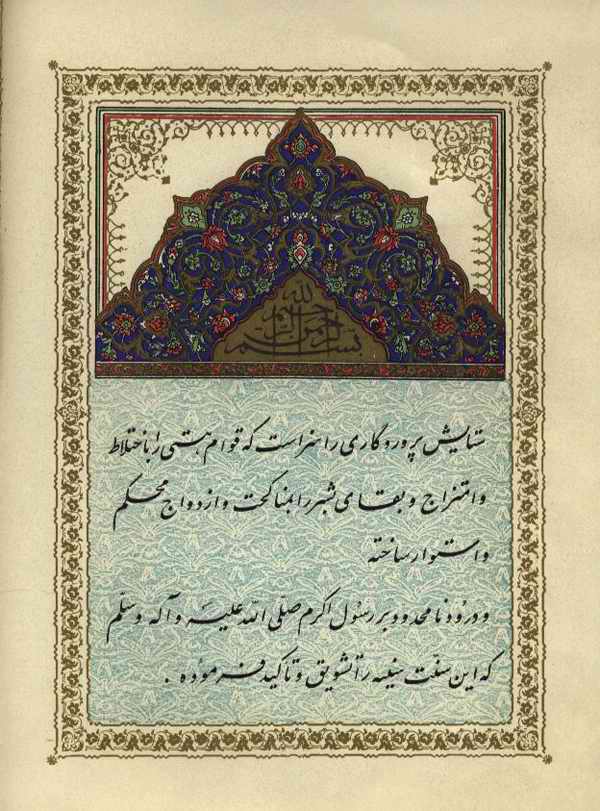 بسم الله الرحمن الرحیم
ستایش پروردگاری را سزاست که قوام هستی را باختلاط
و امتزاج و بقای بشر را بمناکحت و ازدواج محکم
و استوار ساخته
و درود نامحدود بر رسول اکرم صلّی الله علیه و آله و سلّم
که این سنّت سنیّه را تشویق و تأکید فرموده .